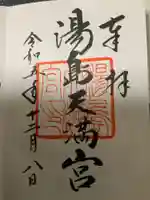 奉拝
湯島天満宮
令和五年十二月八日